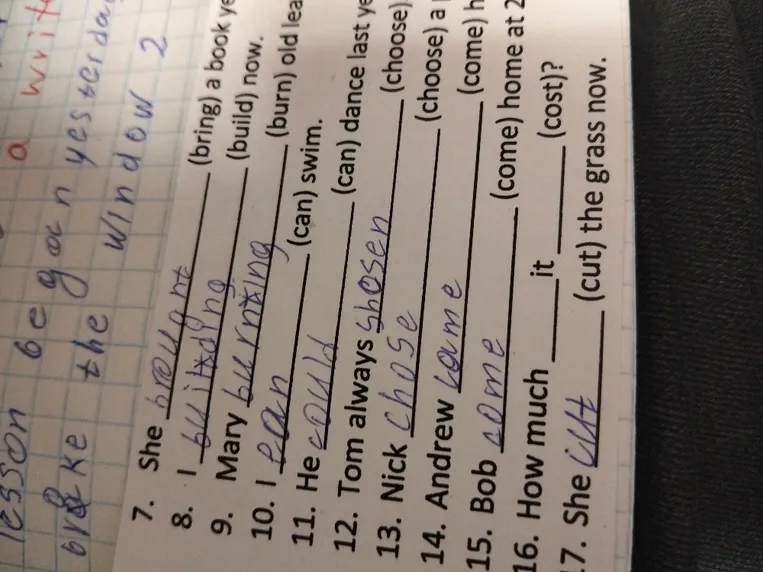 a writ
lesson began yesterday
broke the window 2
7. She brought (bring) a book ye
8. I building (build) now.
9. Mary burning (burn) old lea
10. I can (can) swim.
11. He could (can) dance last ye
12. Tom always chosen (choose)
13. Nick chose (choose) a
14. Andrew came (come) h
15. Bob come (come) home at 2
16. How much ____it ____ (cost)?
17. She cut (cut) the grass now.